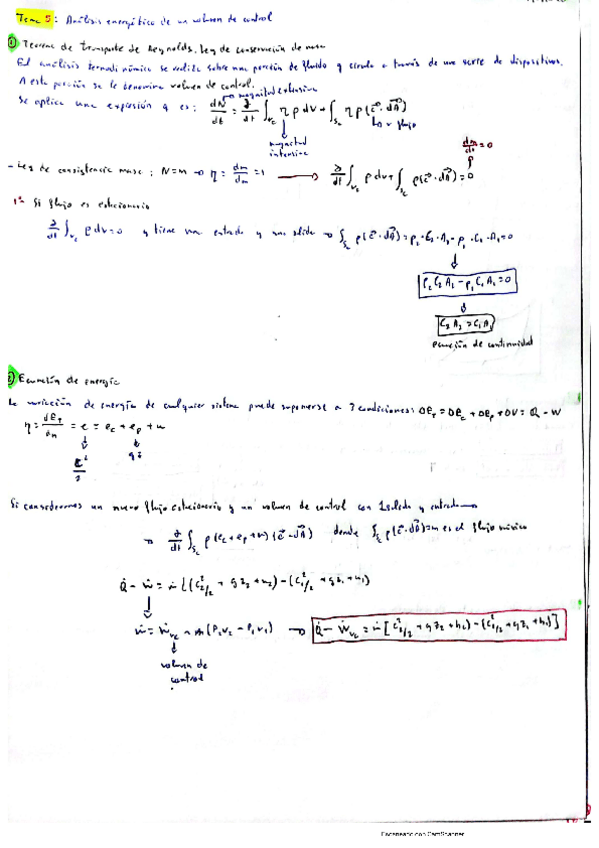 Tema 5: Análisis energético de un volumen de control
1) Teorema de transporte de Reynolds. Ley de conservación de masa
El análisis termodinámico se realiza sobre una porción de fluido q circula a través de una serie de dispositivos.
A esta porción se le denomina volumen de control.
magnitud extensiva
Se aplica una expresión q es: dN/dt = ∂/∂t ∫vc η ρ dV + ∫sc η ρ (c⃗ · dA⃗)
magnitud intensiva
flujo
dm/dt = 0
- Ley de consistencia masa: N=m → η = dm/dm = 1 → ∂/∂t ∫vc ρ dv + ∫sc ρ(c⃗ · dA⃗) = 0
1º Si flujo es estacionario
∂/∂t ∫vc ρ dv = 0 y tiene una entrada y una salida → ∫sc ρ(c⃗ · dA⃗) = ρ2 · C2 · A2 - ρ1 · C1 · A1 = 0
ρ2 C2 A2 - ρ1 C1 A1 = 0
C2 A2 = C1 A1
ecuación de continuidad
2) Ecuación de energía
La variación de energía de cualquier sistema puede suponerse a 3 condiciones: Δe_T = Δe_c + Δe_p + ΔU = Q - W
η = de_T/dm = e = e_c + e_p + u
c²/2
gz
Si consideramos un nuevo flujo estacionario y un volumen de control con 1 salida y entrada →
→ ∂/∂t ∫sc ρ(e_c + e_p + u)(c⃗ · dA⃗) donde ∫sc ρ(c⃗ · dA⃗) = m es el flujo másico
Q̇ - Ẇ = ṁ[(c2²/2 + gz2 + u2) - (c1²/2 + gz1 + u1)]
Ẇ = Ẇvc + ṁ(P2v2 - P1v1) → Q̇ - Ẇvc = ṁ[(c2²/2 + gz2 + h2) - (c1²/2 + gz1 + h1)]
volumen de
control
Escaneado con CamScanner